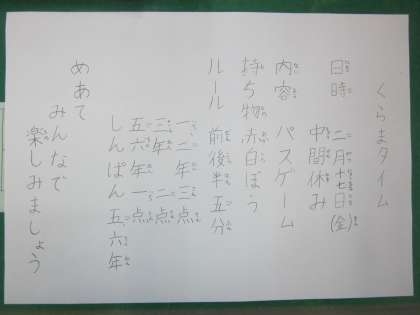 くらまタイム
日時 二月十七日(金)
中間休み
内容 パスゲーム
持ち物 赤白ぼう
ルール 前後半五分
一、二年 三点
三、四年 二点
五、六年 一点
しんぱん 五、六年
めあて
みんなで
楽しみましょう